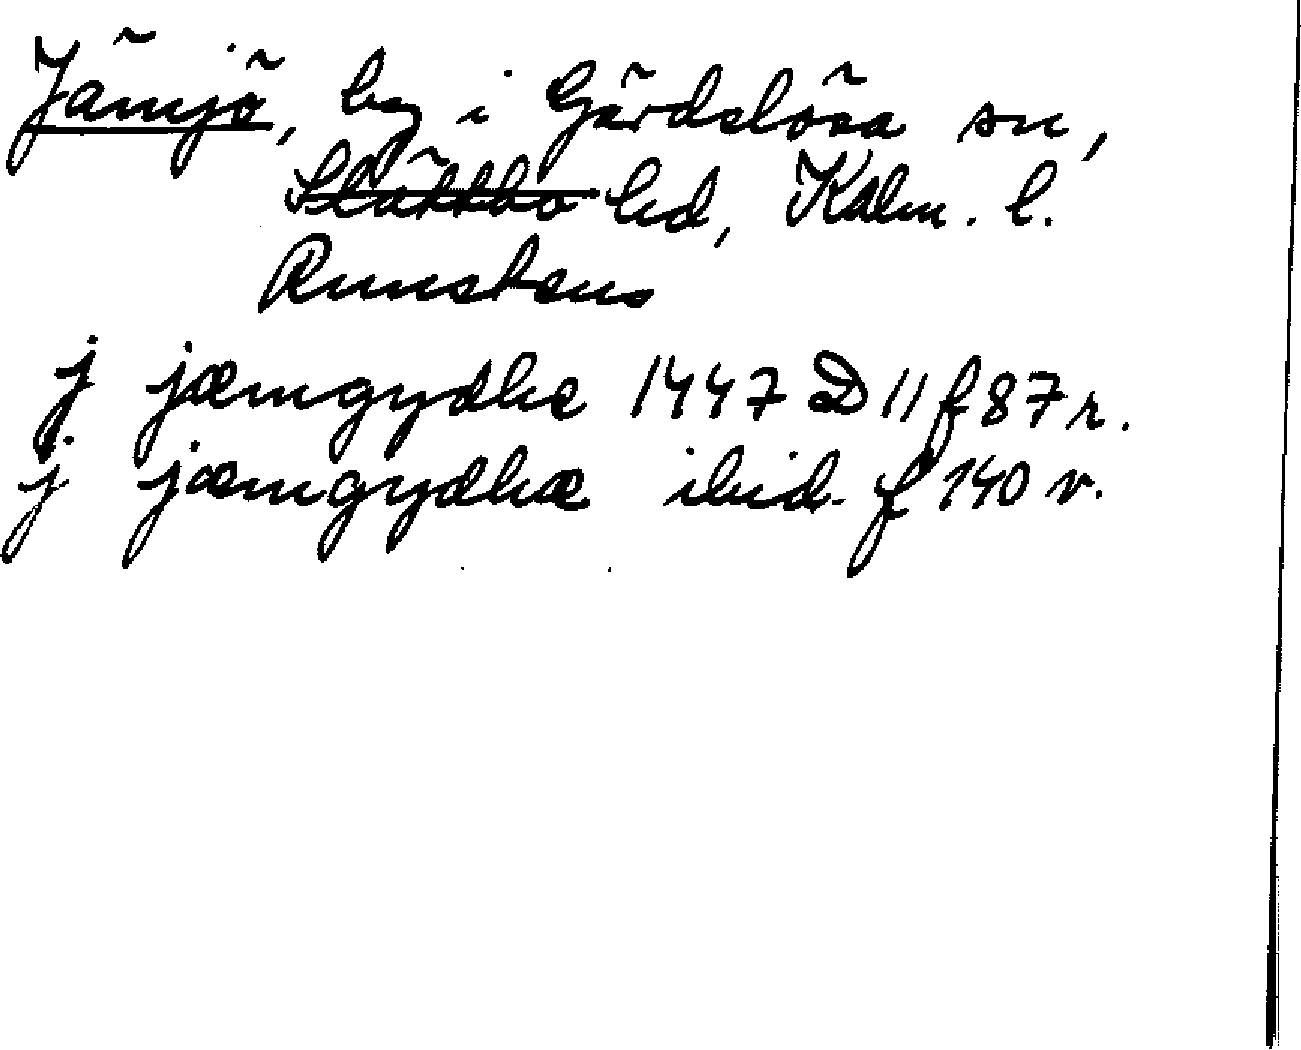 Jämjö, by i Gärdslösa sn,
Slättbo hd, Kalm. l.
Runstens
j jæmgydhe 1447 D 11 f 87 r.
j jæmgydhæ ibid. f 140 v.